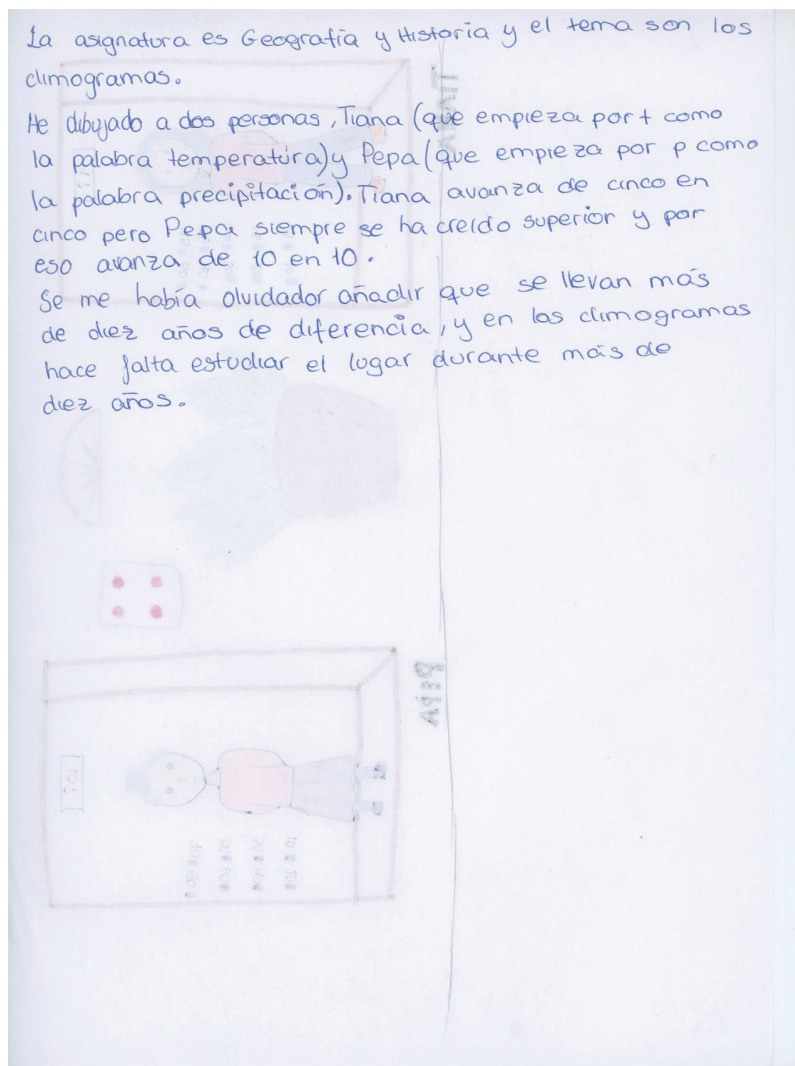 La asignatura es Geografía y Historia y el tema son los
climogramas.
He dibujado a dos personas, Tiana (que empieza por t como
la palabra temperatura) y Pepa (que empieza por p como
la palabra precipitación). Tiana avanza de cinco en
cinco pero Pepa siempre se ha creído superior y por
eso avanza de 10 en 10.
Se me había olvidador añadir que se llevan más
de diez años de diferencia, y en los climogramas
hace falta estudiar el lugar durante más de
diez años.
TIANA
PEPA